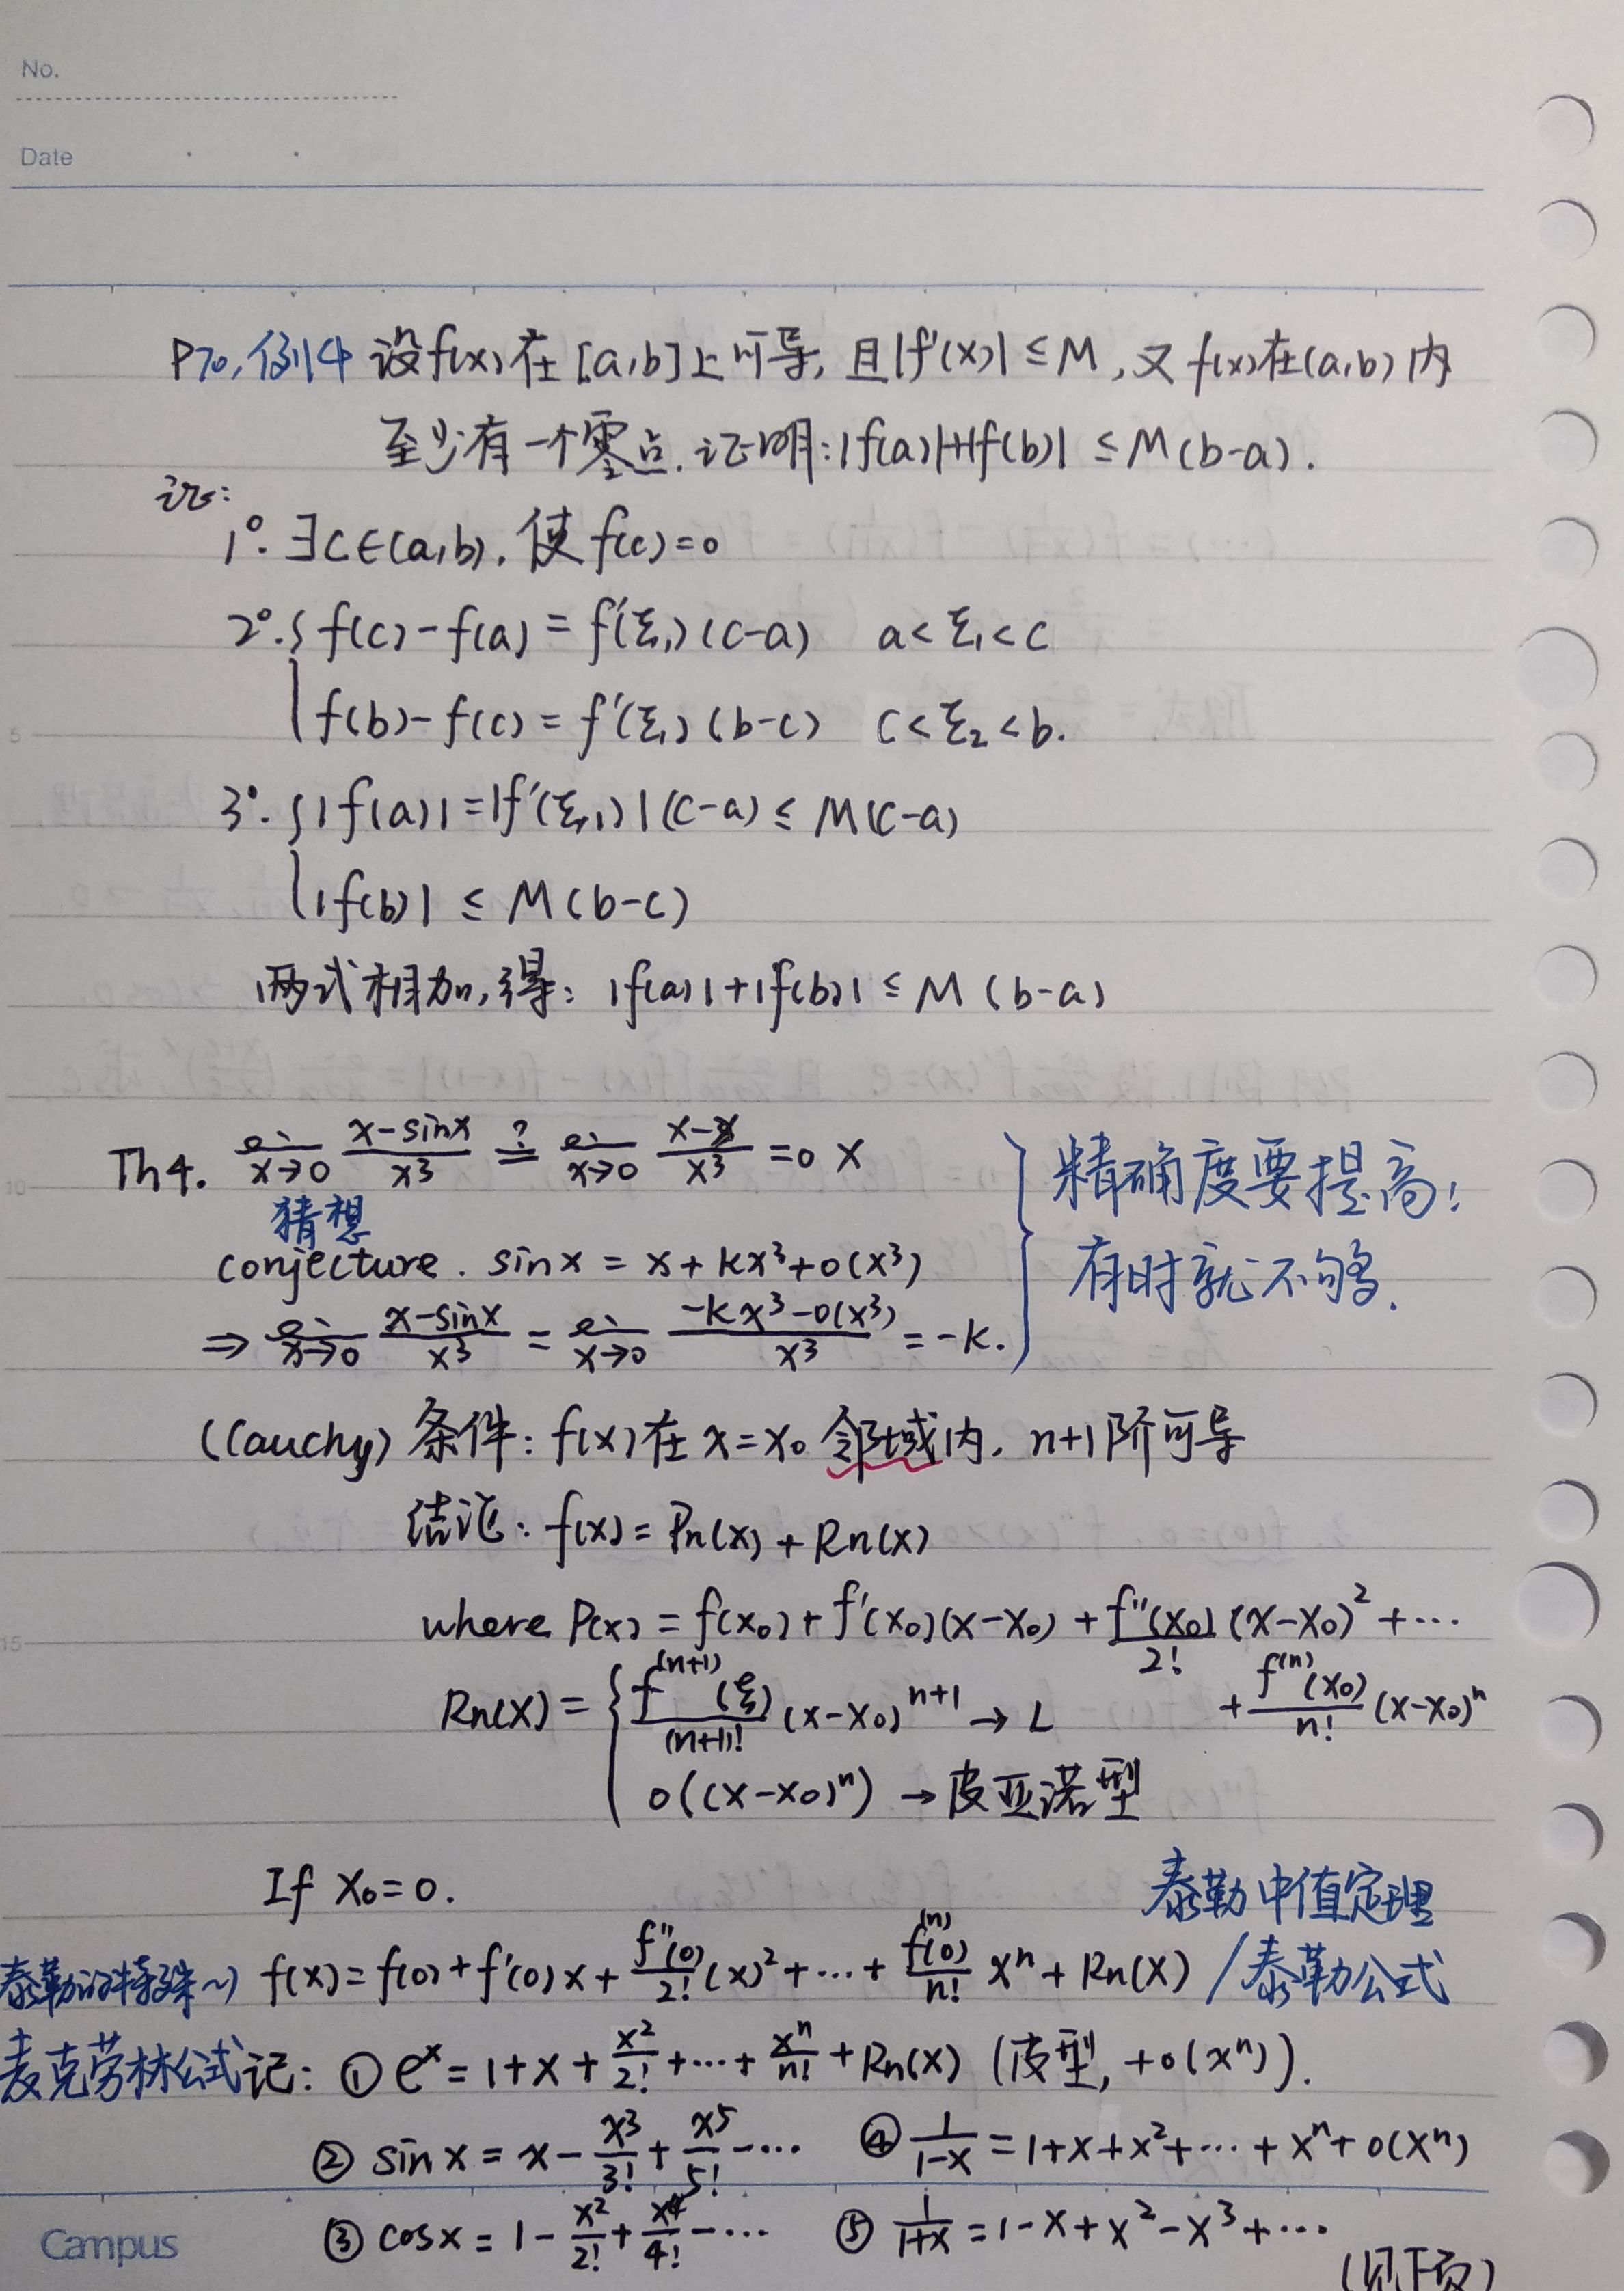 No.
Date
P70,例4 设f(x)在[a,b]上可导,且|f'(x)|≤M,又f(x)在(a,b)内
至少有一个零点.证明:|f(a)|+|f(b)| ≤M(b-a).
证:
1°. ∃C∈(a,b), 使f(c)=0
2°. { f(c)-f(a) = f'(ξ₁)(c-a) a<ξ₁<c
f(b)-f(c) = f'(ξ₁)(b-c) c<ξ₂<b.
3°. { |f(a)|=|f'(ξ₁)|(c-a) ≤ M(c-a)
|f(b)| ≤ M(b-c)
两式相加,得: |f(a)|+|f(b)| ≤ M(b-a)
Th4. lim x→0 (x-sinx)/x³ ?= lim x→0 (x-x)/x³ =0 × } 精确度要提高!
猜想
conjecture. sinx = x+kx³+o(x³) 有时就不够.
⇒ lim x→0 (x-sinx)/x³ = lim x→0 (-kx³-o(x³))/x³ = -k.
(Cauchy) 条件: f(x)在x=x₀邻域内, n+1阶可导
结论: f(x)=Pn(x)+Rn(x)
where P(x) = f(x₀)+f'(x₀)(x-x₀)+f''(x₀)/2! (x-x₀)²+⋯
+f⁽ⁿ⁾(x₀)/n! (x-x₀)ⁿ
Rn(x) = { f⁽ⁿ⁺¹⁾(ξ)/(n+1)! (x-x₀)ⁿ⁺¹ → L
o((x-x₀)ⁿ) → 皮亚诺型
If x₀=0.
泰勒中值定理
泰勒的特殊~) f(x)=f(0)+f'(0)x+f''(0)/2! (x)²+⋯+f⁽ⁿ⁾(0)/n! xⁿ+Rn(x) /泰勒公式
麦克劳林公式记: ① eˣ = 1+x+x²/2!+⋯+xⁿ/n!+Rn(x) (皮型, +o(xⁿ)).
② sinx = x-x³/3!+x⁵/5!-⋯ ④ 1/(1-x) = 1+x+x²+⋯+xⁿ+o(xⁿ)
③ cosx = 1-x²/2!+x⁴/4!-⋯ ⑤ 1/(1+x) = 1-x+x²-x³+⋯
(见下页)
Campus
5
10
15